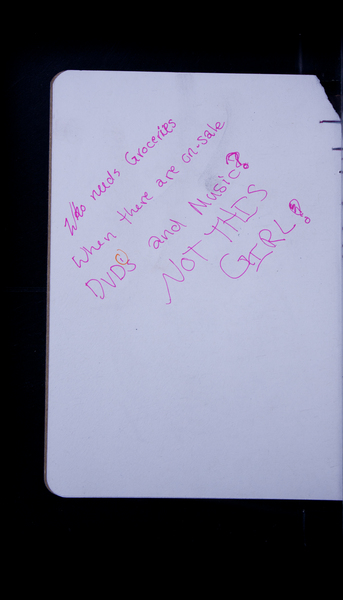 Who needs Groceries
When there are on-sale
DVDs and Music?
NOT THIS
GIRL?